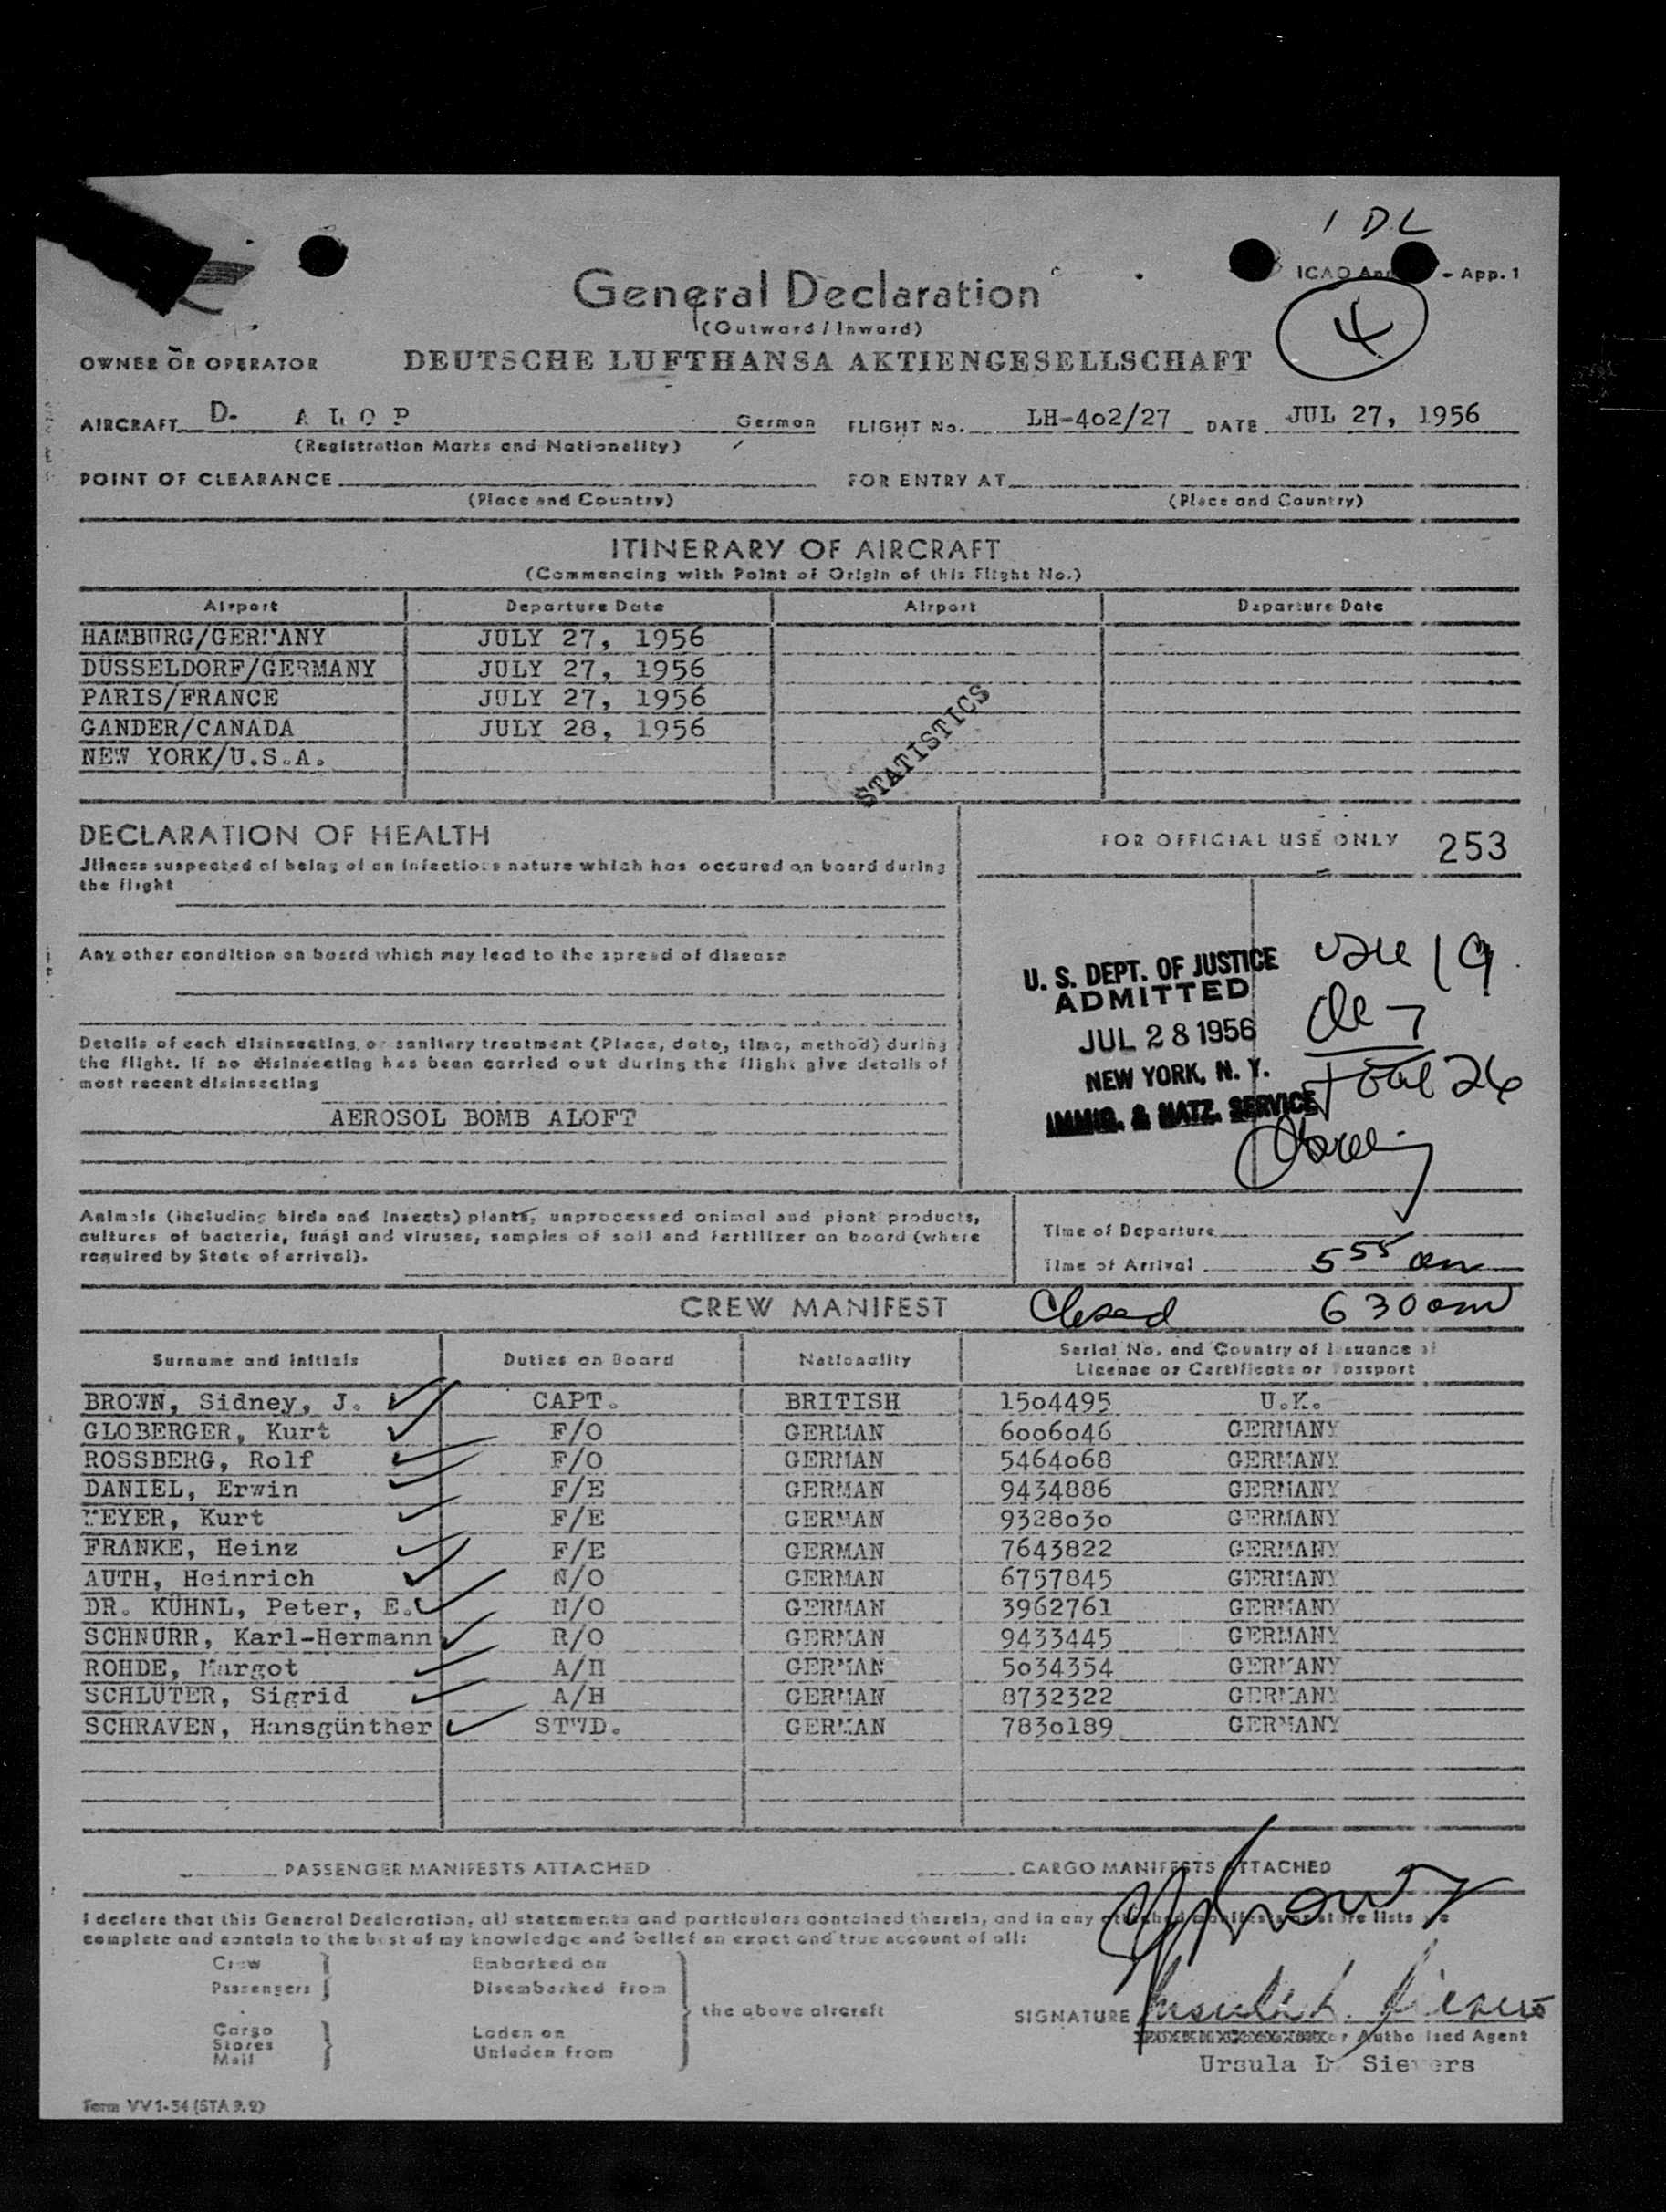 1 DL
ICAO - App. 1
General Declaration
(Outward / Inward)
4
OWNER OR OPERATOR DEUTSCHE LUFTHANSA AKTIENGESELLSCHAFT
AIRCRAFT D- A L O P German FLIGHT No. LH-402/27 DATE JUL 27, 1956
(Registration Marks and Nationality)
POINT OF CLEARANCE FOR ENTRY AT
(Place and Country) (Place and Country)
ITINERARY OF AIRCRAFT
(Commencing with Point of Origin of this Flight No.)
Airport Departure Date Airport Departure Date
HAMBURG/GERMANY JULY 27, 1956
DÜSSELDORF/GERMANY JULY 27, 1956
PARIS/FRANCE JULY 27, 1956
GANDER/CANADA JULY 28, 1956
NEW YORK/U.S.A.
STATISTICS
DECLARATION OF HEALTH
FOR OFFICIAL USE ONLY 253
Illness suspected of being of an infectious nature which has occured on board during
the flight
Any other condition on board which may lead to the spread of disease
U. S. DEPT. OF JUSTICE
ADMITTED
JUL 28 1956
NEW YORK, N. Y.
IMMIG. & NATZ. SERVICE
19
7
Total 26
Details of each disinsecting or sanitary treatment (Place, date, time, method) during
the flight. If no disinsecting has been carried out during the flight give details of
most recent disinsecting
AEROSOL BOMB ALOFT
Animals (including birds and insects) plants, unprocessed animal and plant products,
cultures of bacteria, fungi and viruses, samples of soil and fertilizer on board (where
required by State of arrival).
Time of Departure
Time of Arrival 5 55 am
CREW MANIFEST Closed 6 30 am
Surname and Initials Duties on Board Nationality Serial No. and Country of Issuance of
License or Certificate or Passport
BROWN, Sidney, J. CAPT. BRITISH 1504495 U.K.
GLOBERGER, Kurt F/O GERMAN 6006046 GERMANY
ROSSBERG, Rolf F/O GERMAN 5464068 GERMANY
DANIEL, Erwin F/E GERMAN 9434886 GERMANY
MEYER, Kurt F/E GERMAN 9328030 GERMANY
FRANKE, Heinz F/E GERMAN 7643822 GERMANY
AUTH, Heinrich N/O GERMAN 6757845 GERMANY
DR. KÜHNL, Peter, E. N/O GERMAN 3962761 GERMANY
SCHNURR, Karl-Hermann R/O GERMAN 9433445 GERMANY
ROHDE, Margot A/H GERMAN 5034354 GERMANY
SCHLÜTER, Sigrid A/H GERMAN 8732322 GERMANY
SCHRAVEN, Hansgünther STWD. GERMAN 7830189 GERMANY
PASSENGER MANIFESTS ATTACHED CARGO MANIFESTS ATTACHED
I declare that this General Declaration, all statements and particulars contained therein, and in any attached manifests or store lists are
complete and contain to the best of my knowledge and belief an exact and true account of all:
Crew Embarked on
Passengers Disembarked from
the above aircraft
Cargo Laden on
Stores
Mail Unladen from
SIGNATURE Ursula L. Sievers
or Authorised Agent
Ursula L. Sievers
Form VV 1-54 (STA 9.2)